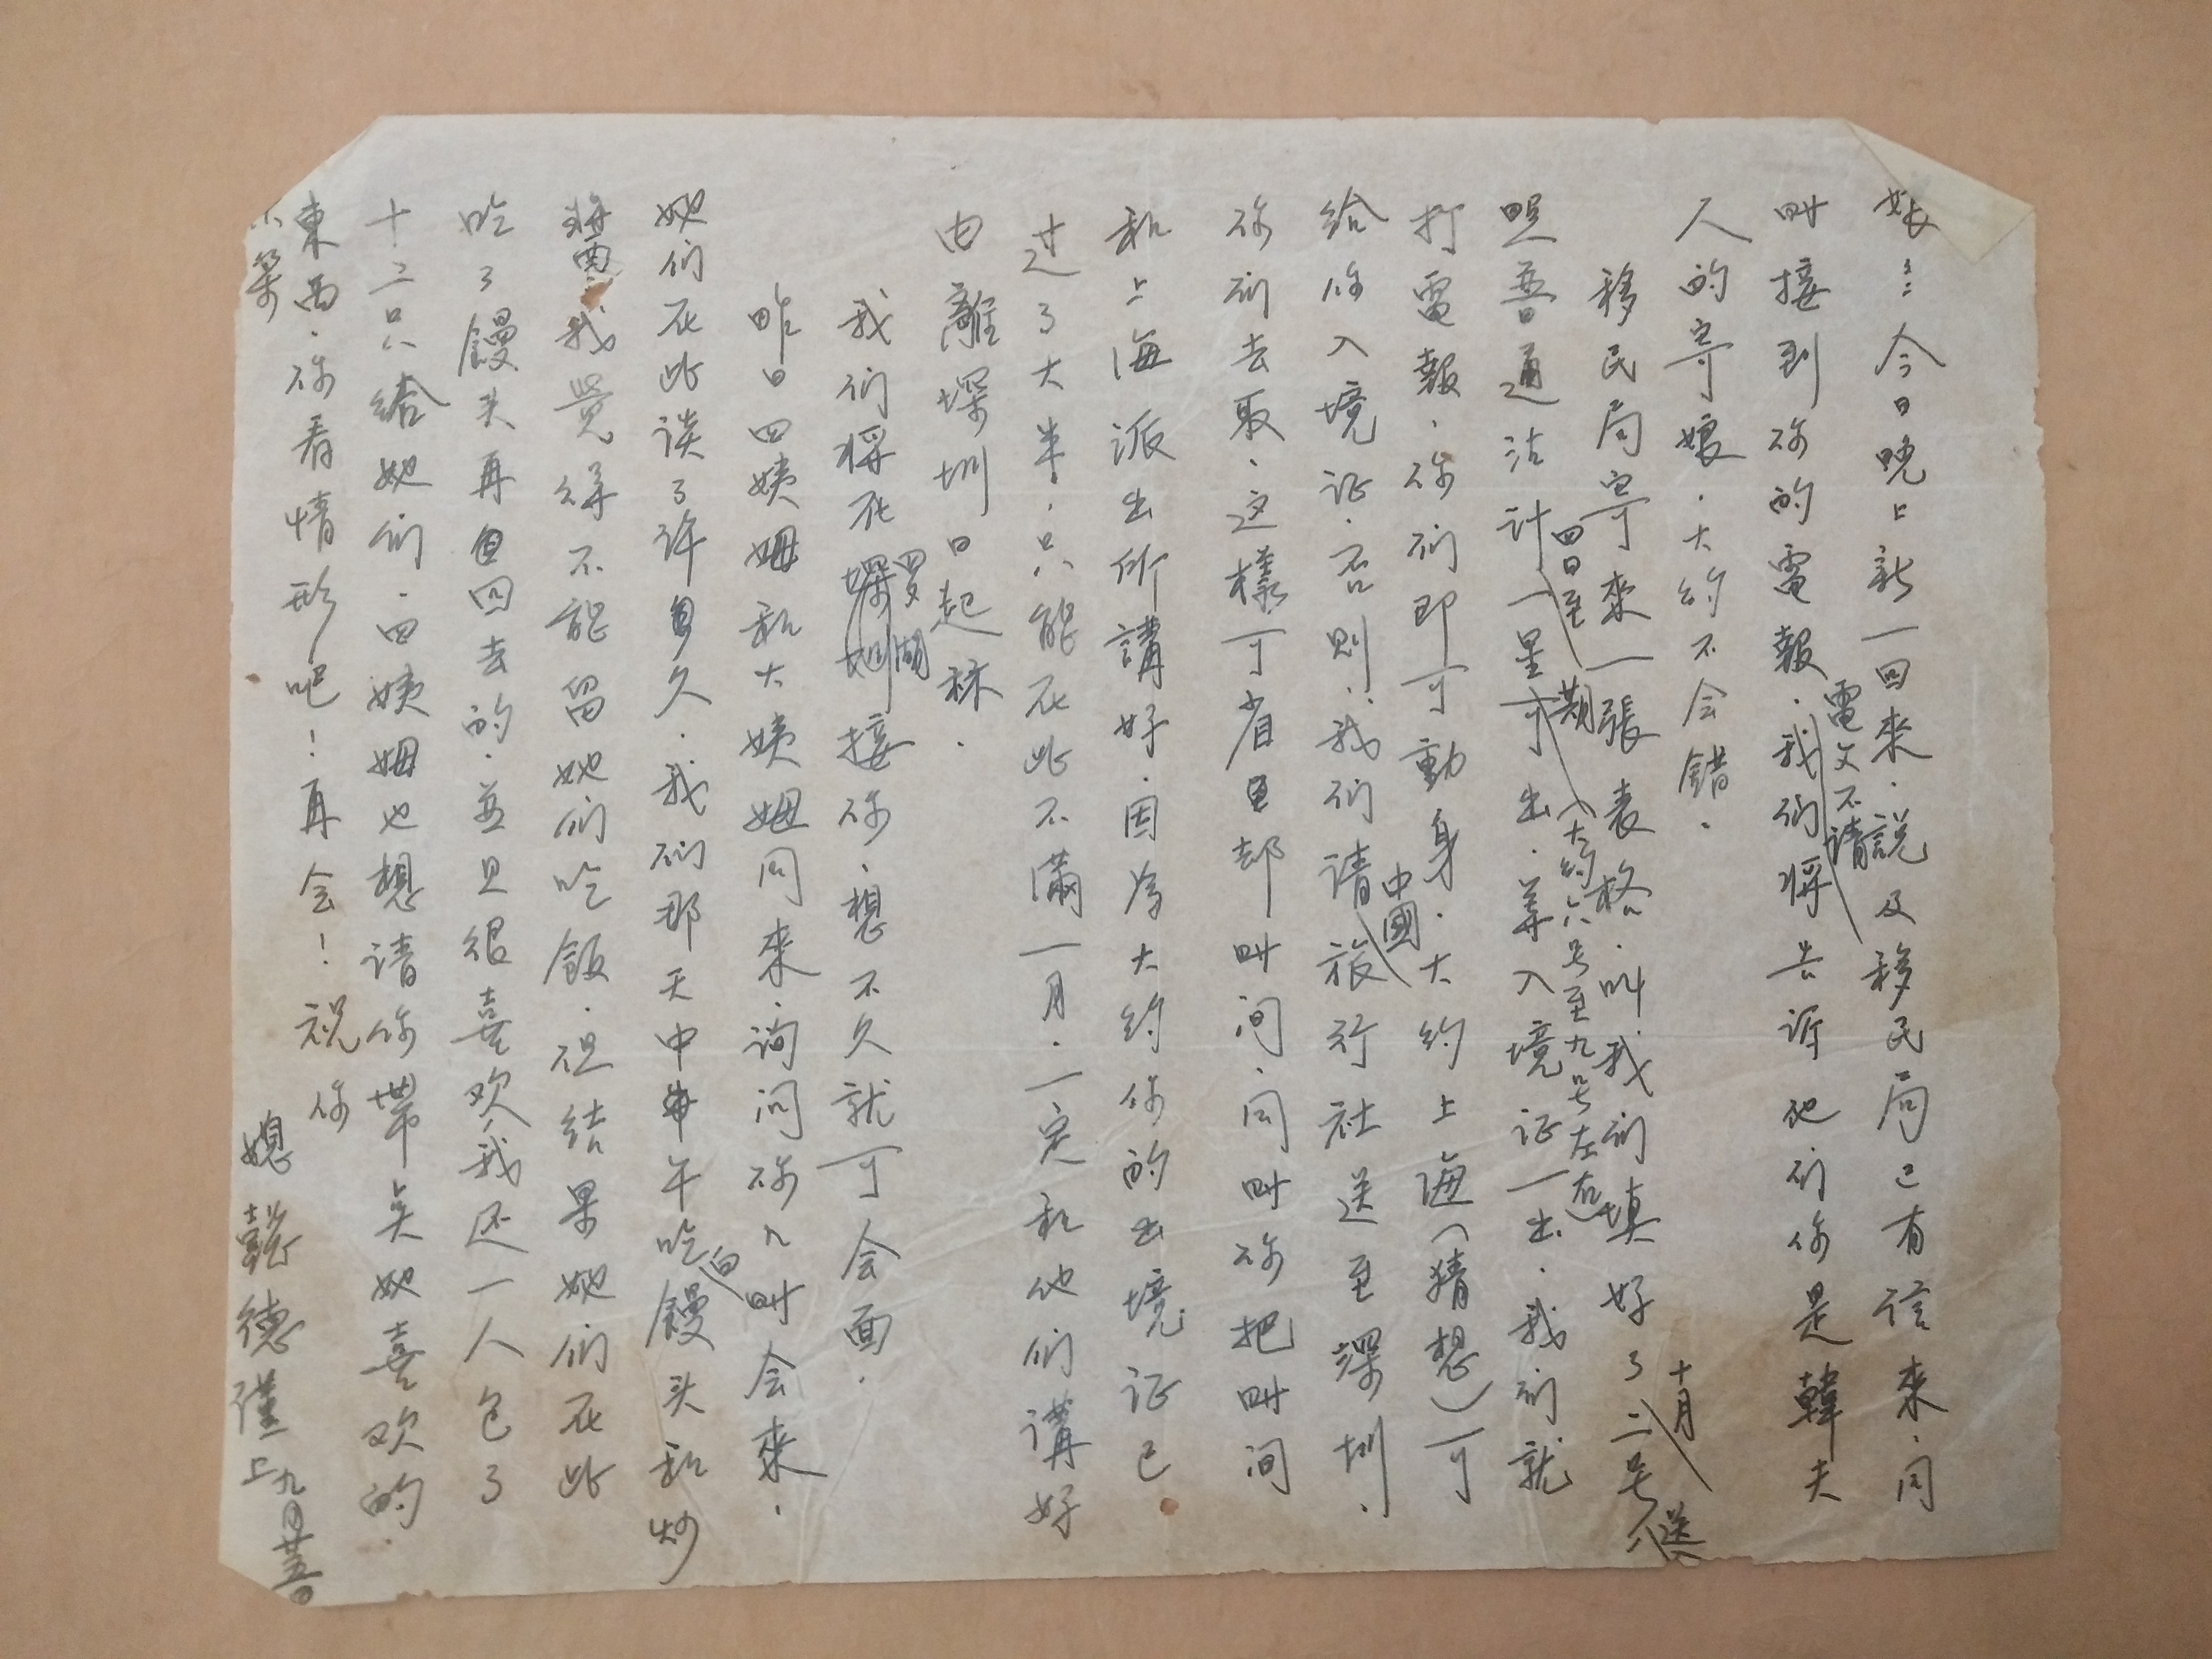 娘：今日晚上新一回來．説及移民局已有信來．问
叫接到你的電報．我们將告诉他们你是韓夫
電文不請
人的寄娘．大約不会錯．
移民局寄來一張表格．叫我们填好了二号
十月
送
照普通估計一星可出．等入境证一出．我们就
四日至
期
（大約六号至九号左右）
打電報．你们即可動身．大約上海（猜想）可
給你入境证．否則．我们請旅行社送至深圳．
中國
你们去取．这樣可省
和上海派出所講好．因為大約你的出境证已
过了大半．只能在此不滿一月．一定和他们講好
由離深圳日起
我们將在接你．想不久就可会面．
羅湖
昨日四姨姆和大姨姆同來．询问你几时会來．
她们在此谈了许多久．我们那天中午吃饅头和炒
白
我覺得不能留她们吃飯．但结果她们在此
吃了饅头再回去的．並且很喜欢．我还一人包了
十二只給她们．四姨姆也想请你帶些她喜欢的
東西．你看情形吧！再会！祝你
媳懿德謹上九月廿五日